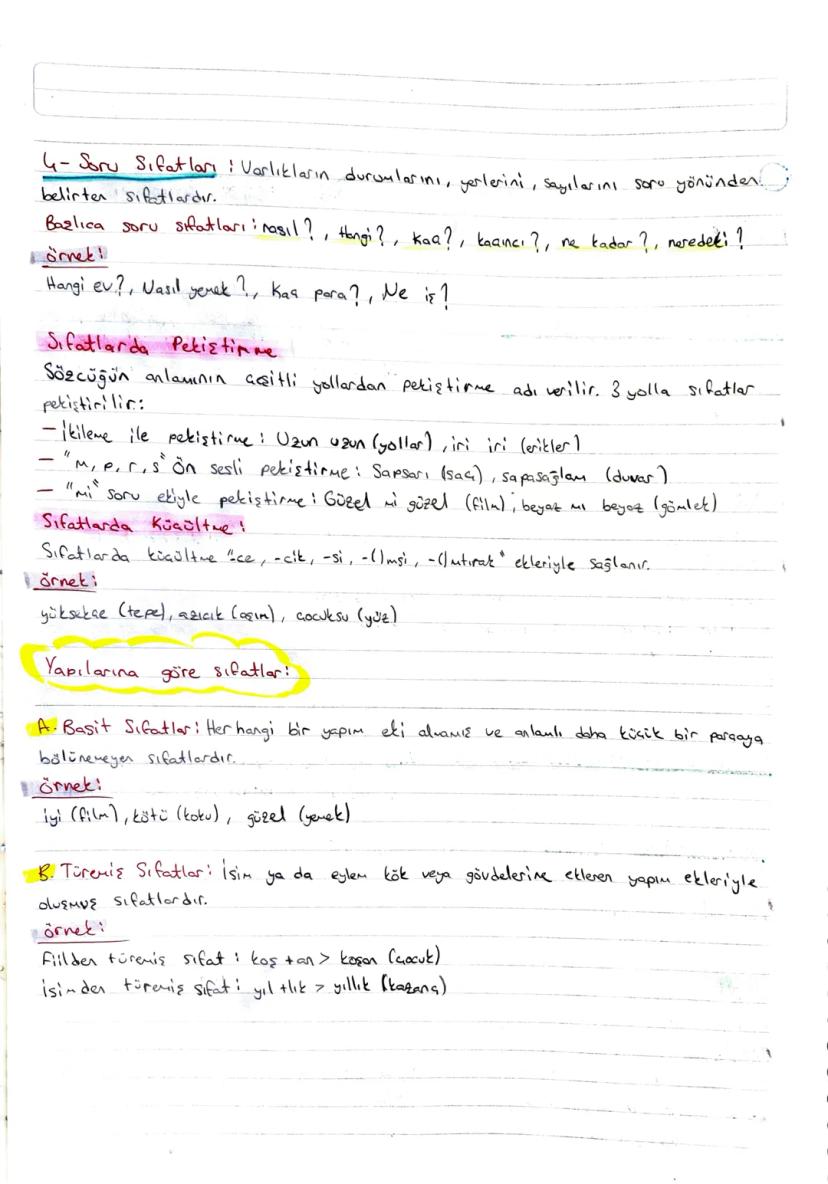 4- Soru Sıfatları : Varlıkların durumlarını, yerlerini, sayılarını soru yönünden
belirten sıfatlardır.
Başlıca soru sıfatları : nasıl?, Hangi?, kaç?, kaçıncı?, ne kadar?, neredeki?
örnek:
Hangi ev?, Nasıl yemek?, Kaç para?, Ne iş?
Sıfatlarda Pekiştirme
Sözcüğün anlamının çeşitli yollardan pekiştirme adı verilir. 3 yolla sıfatlar
pekiştirilir:
- İkileme ile pekiştirme : Uzun uzun (yollar), iri iri (erikler)
- "m, p, r, s" Ön sesli pekiştirme : Sapsarı (saç), sapasağlam (duvar)
- "mi" soru ekiyle pekiştirme : Güzel mi güzel (film), beyaz mı beyaz (gömlek)
Sıfatlarda Küçültme :
Sıfatlarda küçültme "-ce, -cik, -si, -()msi, -()mtırak" ekleriyle sağlanır.
örnek:
yüksekçe (tepe), azıcık (aşım), çocuksu (yüz)
Yapılarına göre sıfatlar:
A. Basit Sıfatlar : Her hangi bir yapım eki almamış ve anlamlı daha küçük bir parçaya
bölünemeyen sıfatlardır.
örnek:
iyi (film), kötü (koku), güzel (yemek)
B. Türemiş Sıfatlar : İsim ya da eylem kök veya gövdelerine eklenen yapım ekleriyle
oluşmuş sıfatlardır.
örnek:
Fiilden türemiş sıfat : koş + an > koşan (çocuk)
İsimden türemiş sıfat : yıl + lık > yıllık (kazanç)